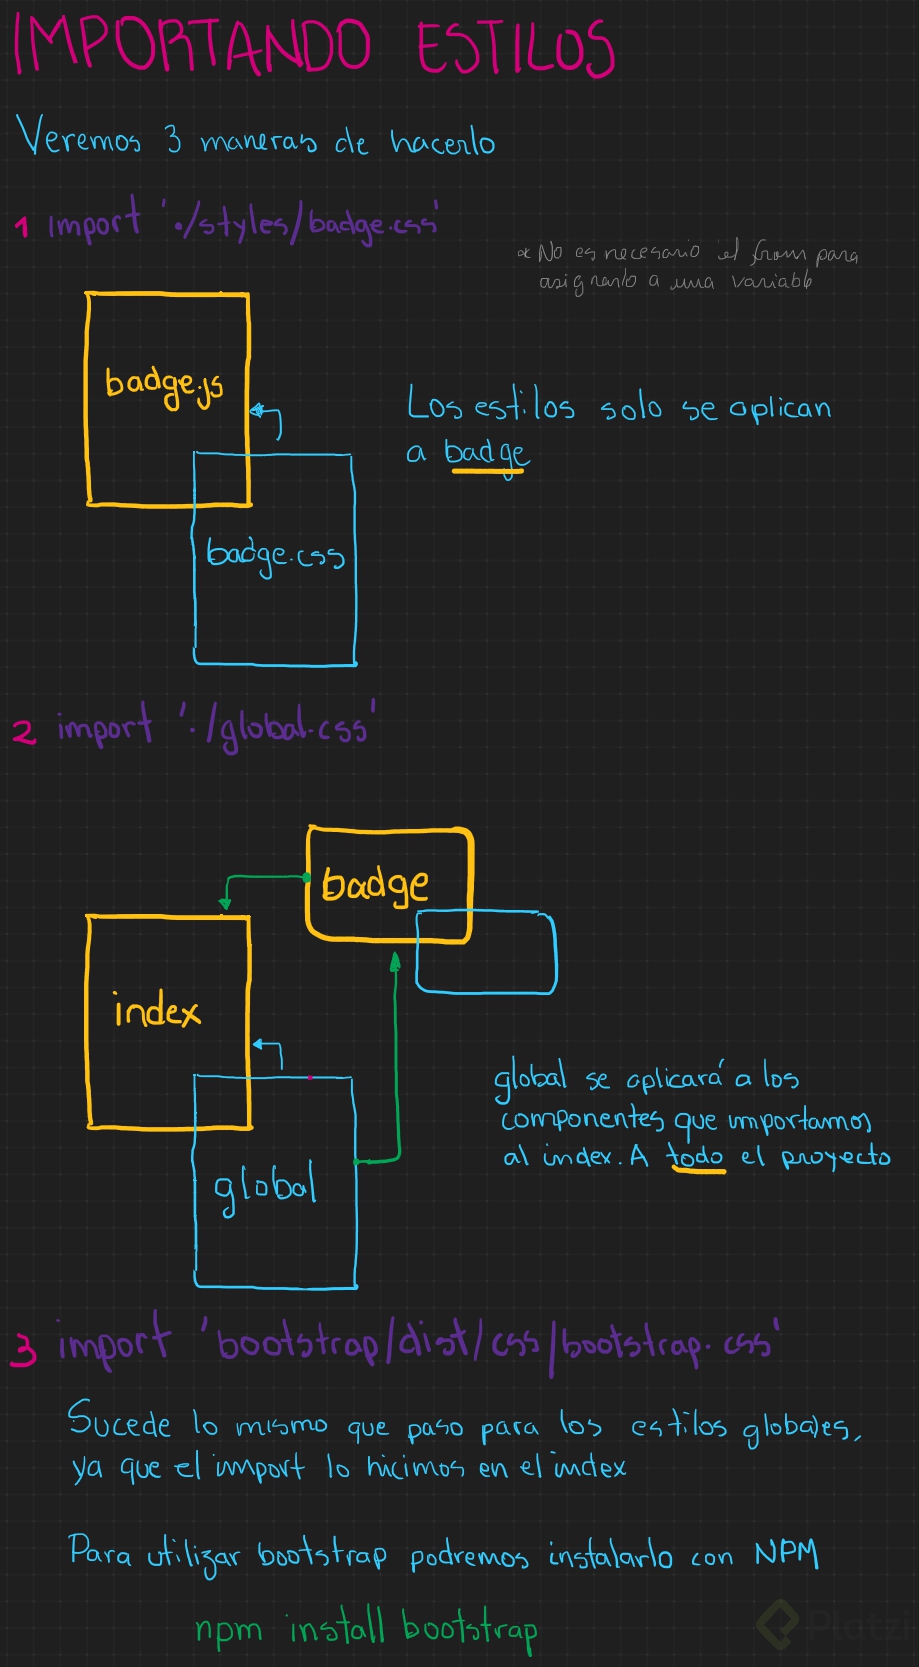 IMPORTANDO ESTILOS
Veremos 3 maneras de hacerlo
1 import './styles/badge.css'
* No es necesario el from para
asignarlo a una variable
badge.js
Los estilos solo se aplican
a badge
badge.css
2 import './global.css'
badge
index
global se aplicará a los
componentes que importamos
al index. A todo el proyecto
global
3 import 'bootstrap/dist/css/bootstrap.css'
Sucede lo mismo que paso para los estilos globales,
ya que el import lo hicimos en el index
Para utilizar bootstrap podremos instalarlo con NPM
npm install bootstrap
Platzi